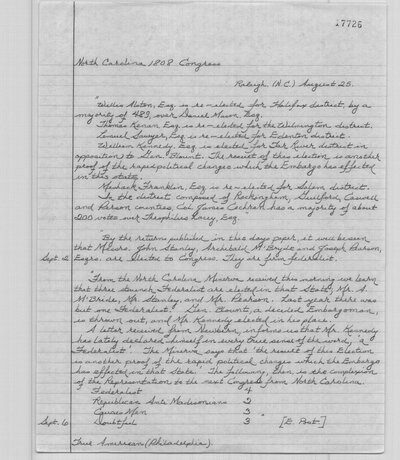 17726
North Carolina 1808 Congress
Raleigh (N.C.) August 25.
"Willis Alston, Esq. is re-elected for Halifax district, by a
majority of 483, over Daniel Mason Esq.
Thomas Kenan, Esq. is re-elected for the Wilmington district.
Lemuel Sawyer, Esq. is re-elected for Edenton district.
William Kennedy, Esq. is elected for Tar River district in
opposition to Gen. Blount. The result of this election is another
proof of the rapid political changes which the Embargo has effected
in this state.
Meshack Franklin, Esq. is re-elected for Salem district.
In the district composed of Rockingham, Guilford, Caswell
and Person counties Col. James Cochran has a majority of about
200 votes over Theophilus Lacey, Esq.
"By the returns published in this days paper, it will be seen
that Messrs. John Stanley, Archibald McBryde and Joseph Pearson,
Sept. 2 Esqrs. are elected to Congress. They are firm federalist.
"From the North Carolina Minerva received this morning we learn
that three staunch Federalist are elected in that State, Mr. A.
McBride, Mr. Stanley, and Mr. Pearson. Last year there was
but one Federalist. Gen. Blount, a decided Embargoman,
is thrown out, and Mr. Kennedy elected in his place.
A letter received from Newbern, informs us that Mr. Kennedy
has lately declared himself in every true sense of the word, "a
Federalist". The Minerva says that "the result of this Election
is another proof of the rapid political changes which the Embargo
has effected in that State." The following, then, is the complexion
of the Representation to the next Congress from North Carolina.
Federalist 4
Republican Anti Madisonians 2
Caucus Men 3 "
Sept. 6 Doubtful 3 [E. Post]
True American (Philadelphia).